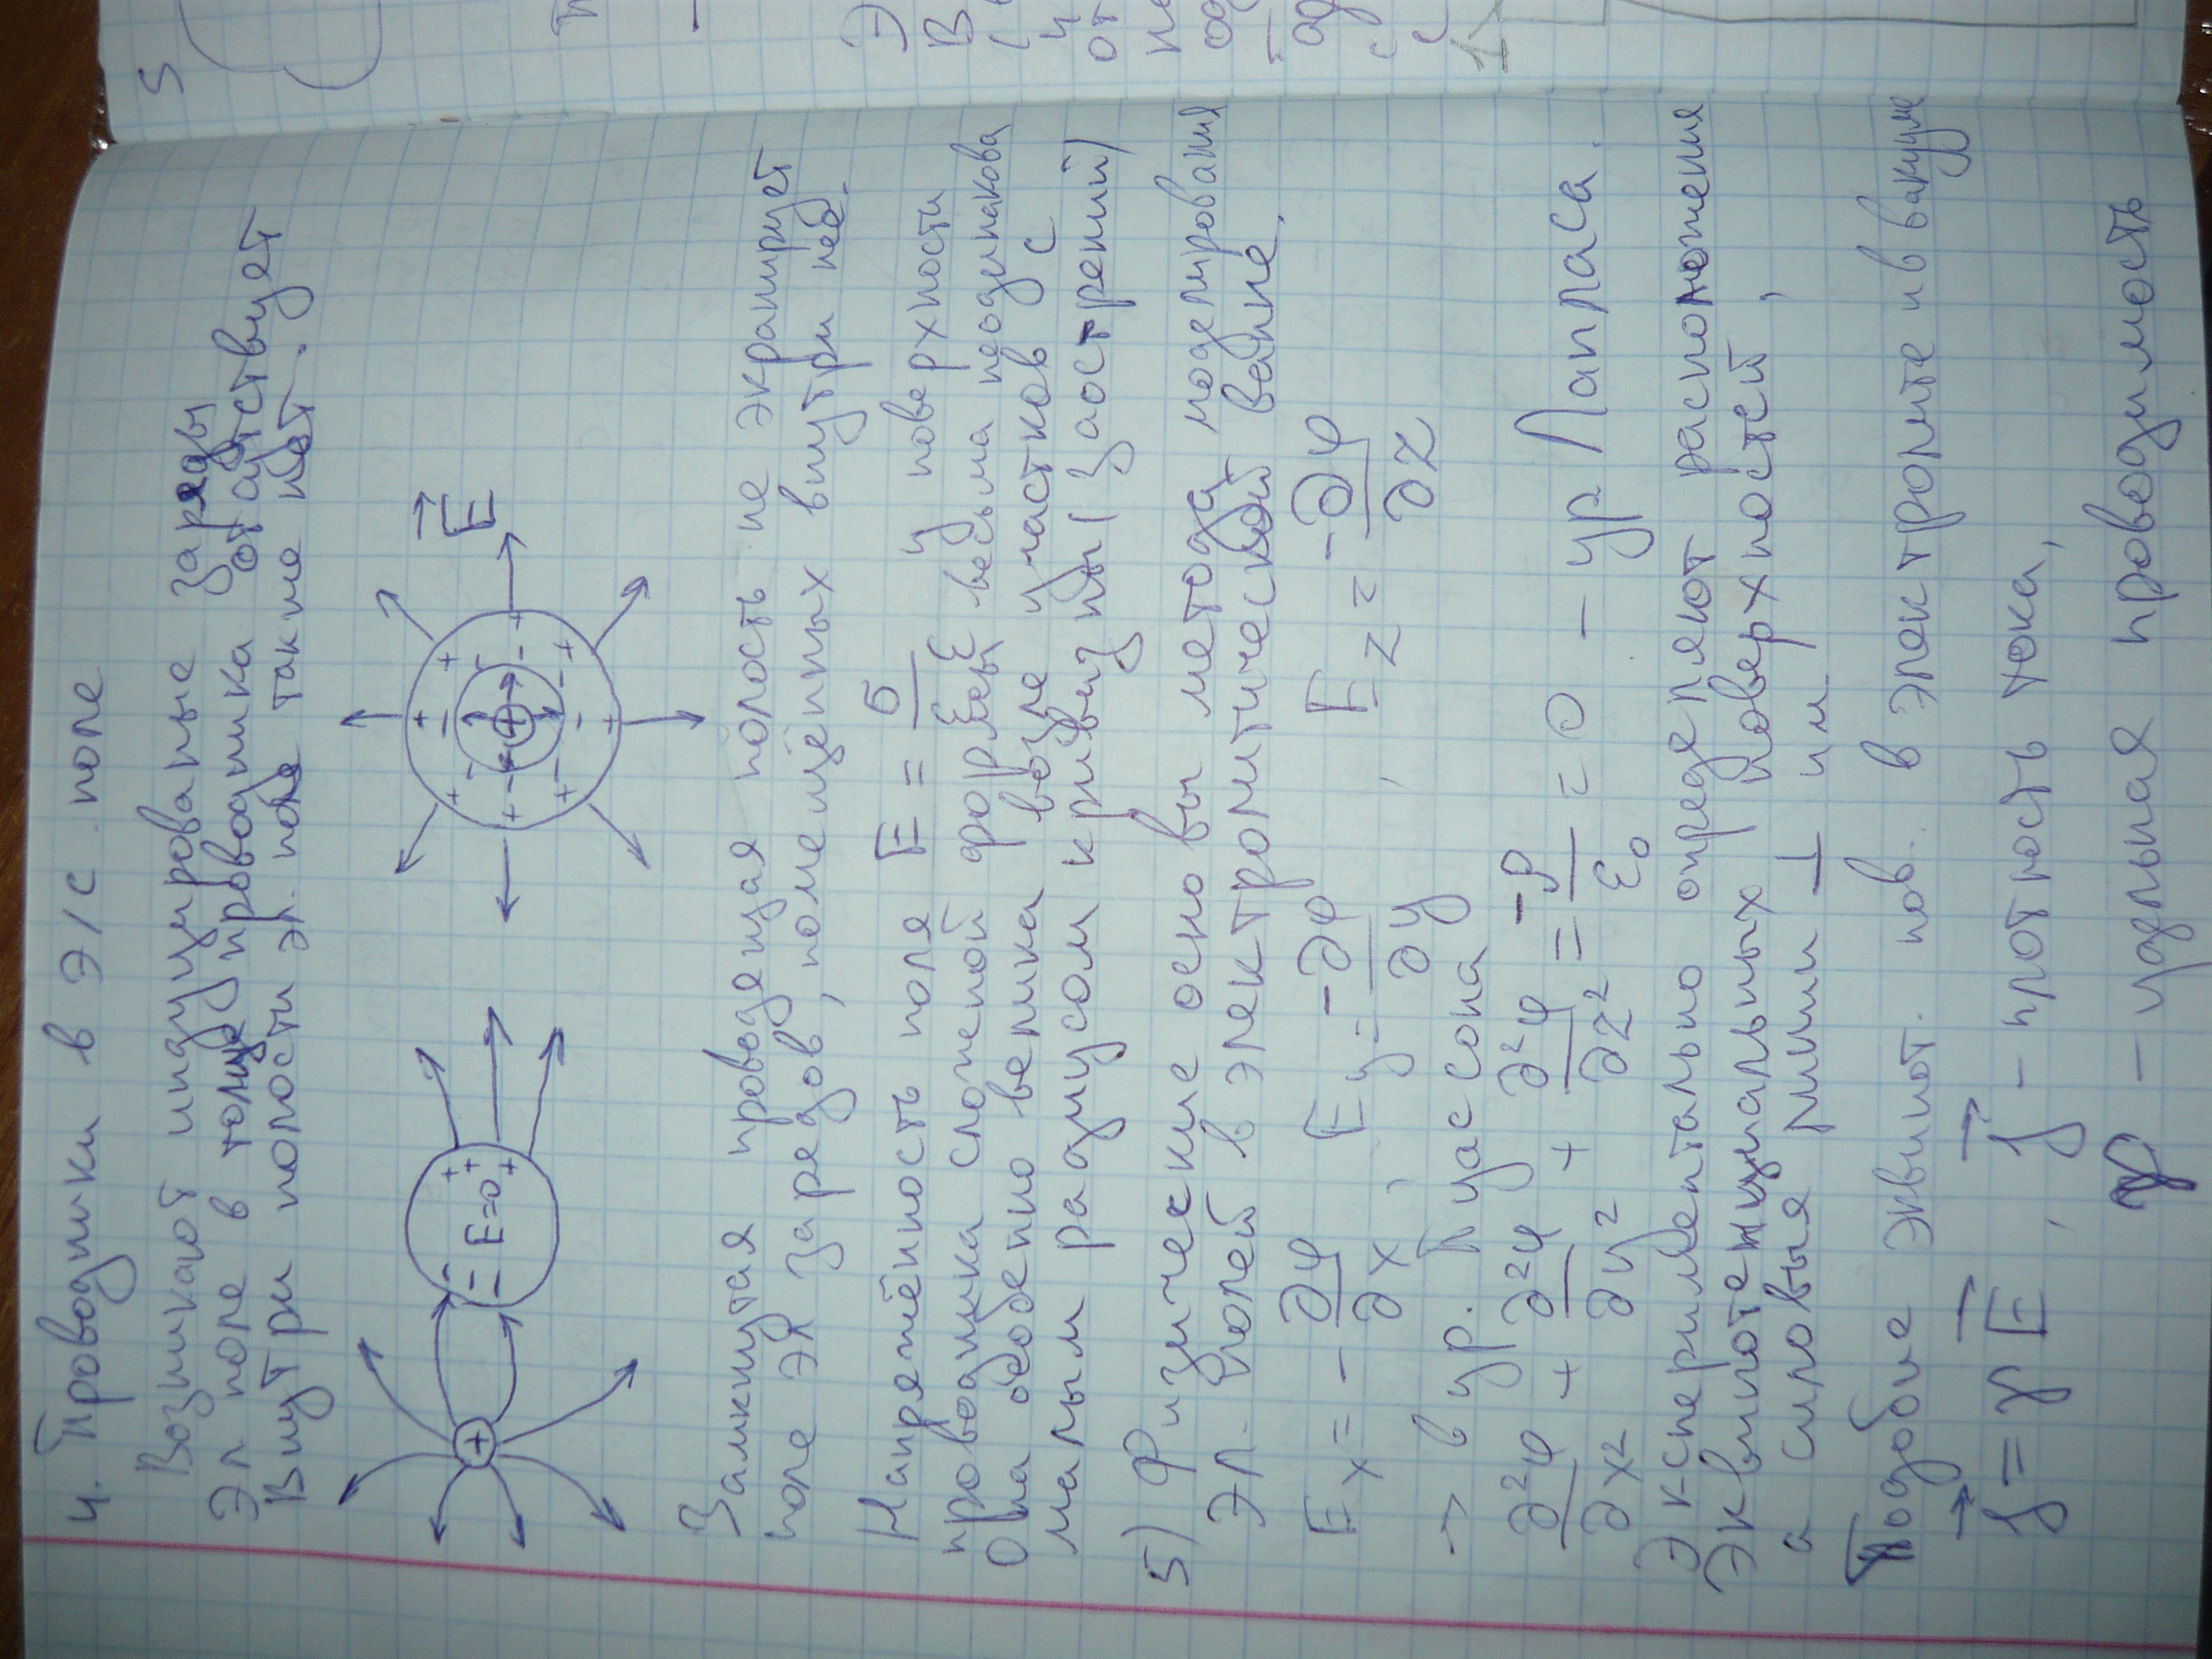 4. Проводники в э/с поле
Возникают индуцированые заряды
Эл поле в толще проводника отсутствует
Внутри полости эл. поле также нет.
+ - - - E=0 + + +
+ + + + + + + + - - - - - - - - + E
Замкнутая проводящая полость не экранирует
поле эл зарядов, помещённых внутри неё.
Напряжённость поля E = σ / ε₀ε у поверхности
проводника сложной формы весьма неодинакова
Она особенно велика возле участков с
малым радиусом кривизны (заострений)
5) Физические основы метода моделирования
Эл. полей в электролитической ванне.
Eₓ = - ∂φ/∂x, E_y = -∂φ/∂y, E_z = -∂φ/∂z
→ в ур. Пуассона
∂²φ/∂x² + ∂²φ/∂y² + ∂²φ/∂z² = -ρ/ε₀ = 0 – ур Лапласа.
Экспериментально определяют расположение
Эквипотенциальных поверхностей,
а силовые линии ⊥ им
Подобие эквипот. пов. в электролите и в вакууме
j⃗ = γ E⃗, j⃗ – плотность тока,
γ – удельная проводимость